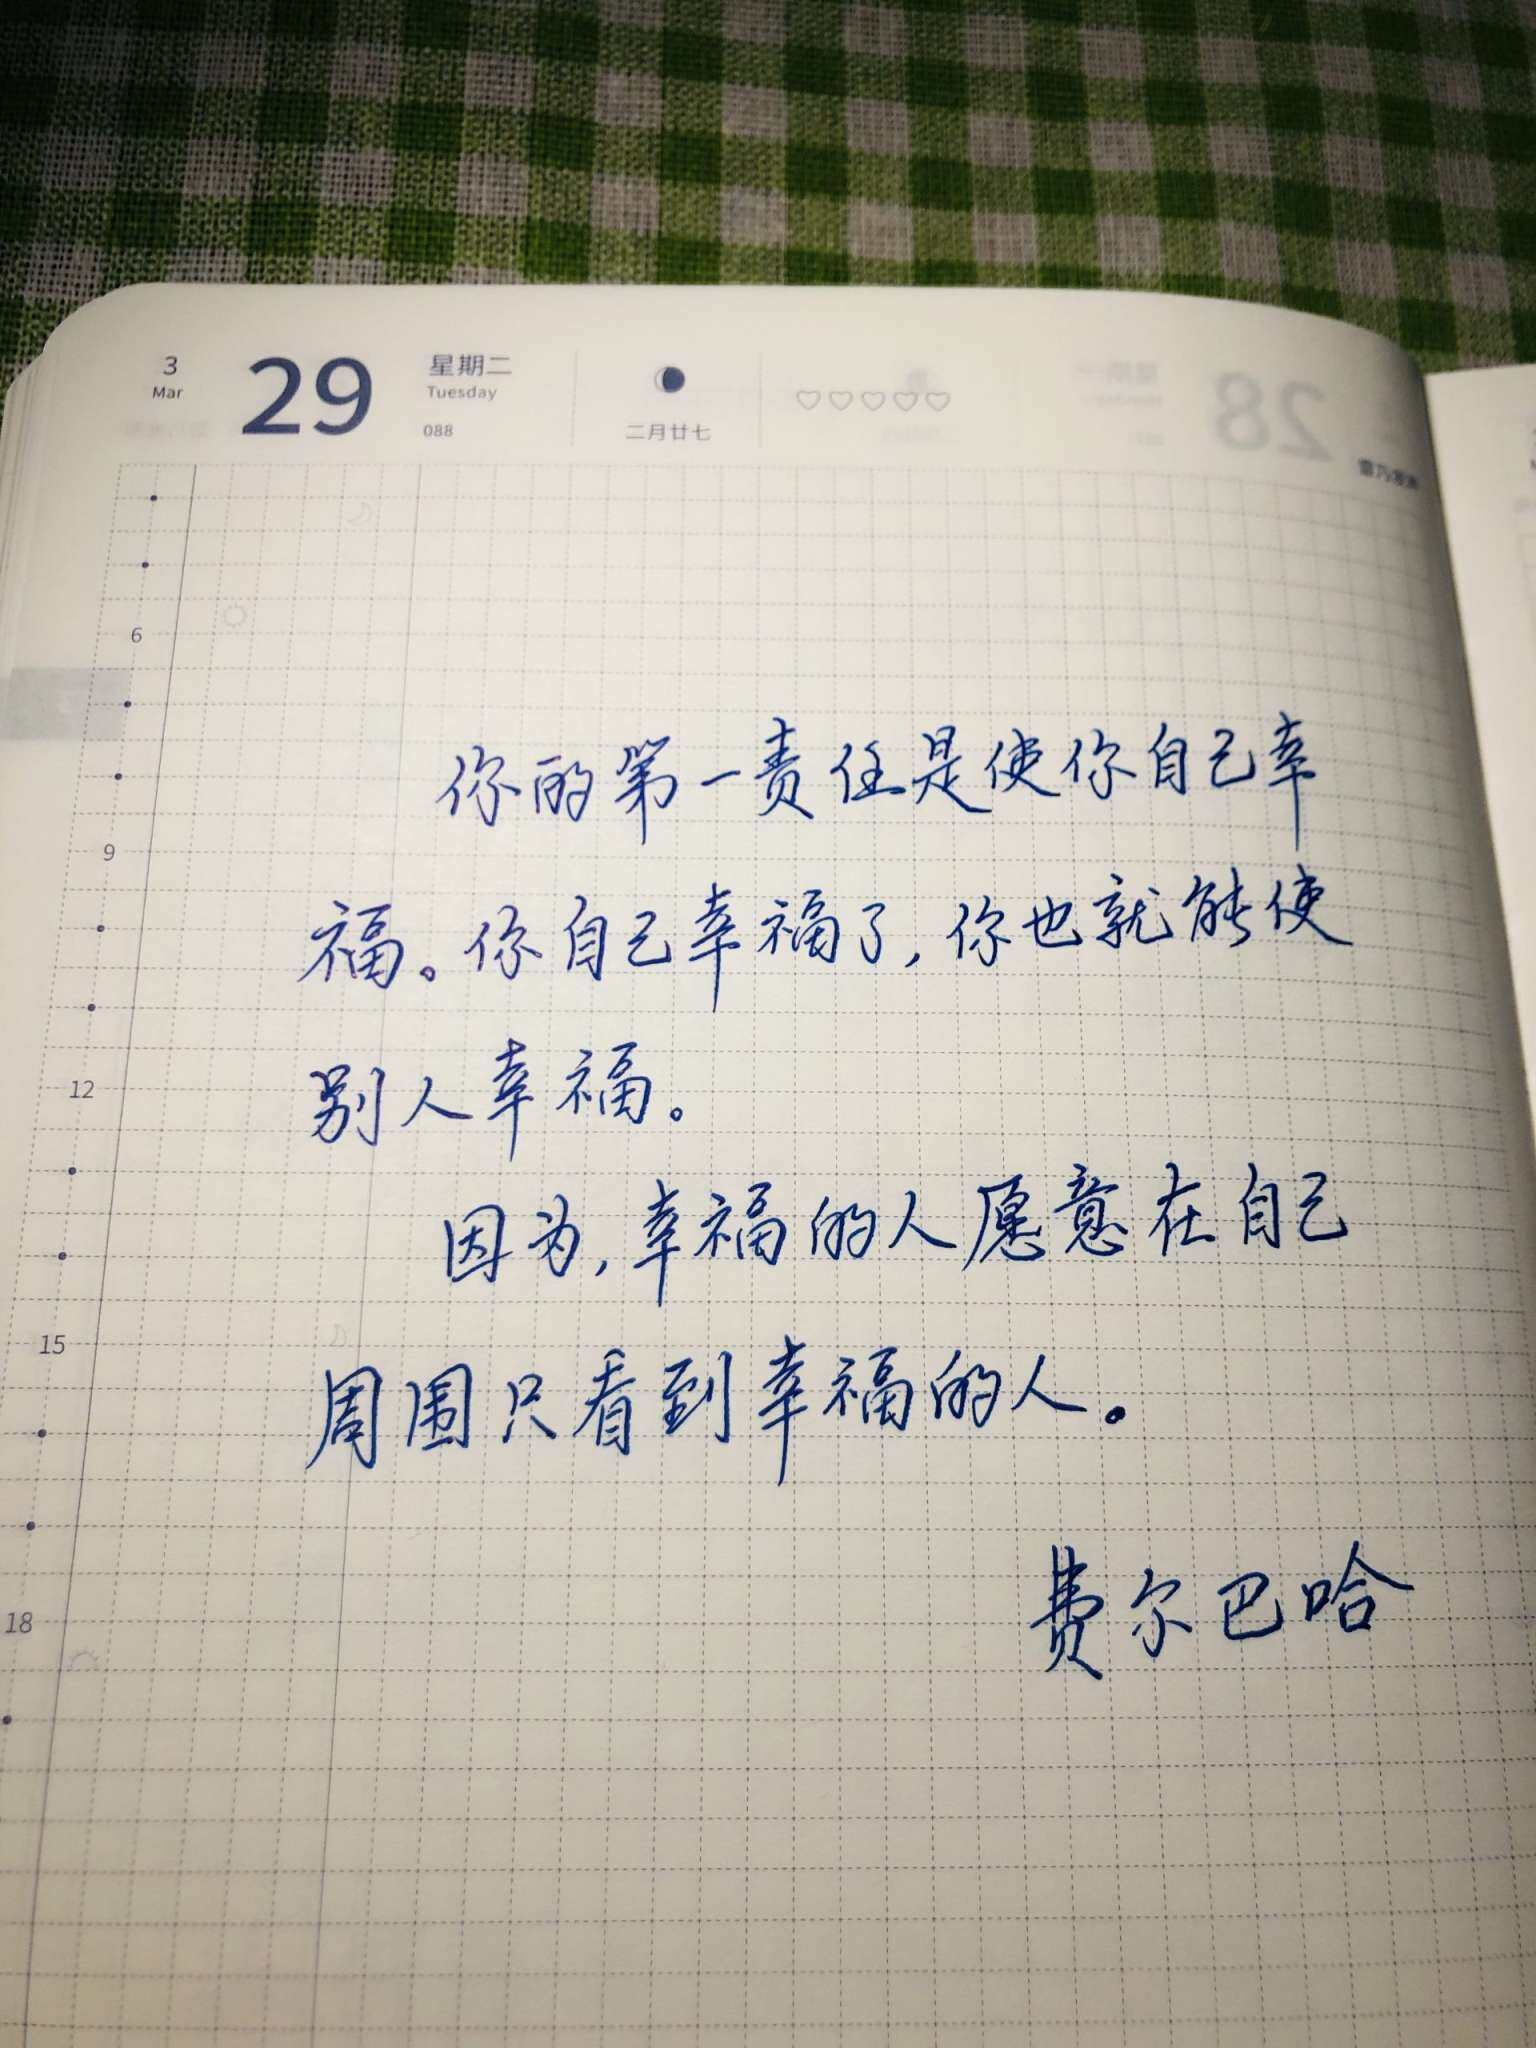 3
Mar
29
星期二
Tuesday
088
二月廿七
28
6
9
12
15
18
你的第一责任是使你自己幸
福。你自己幸福了,你也就能使
别人幸福。
因为,幸福的人愿意在自己
周围只看到幸福的人。
费尔巴哈